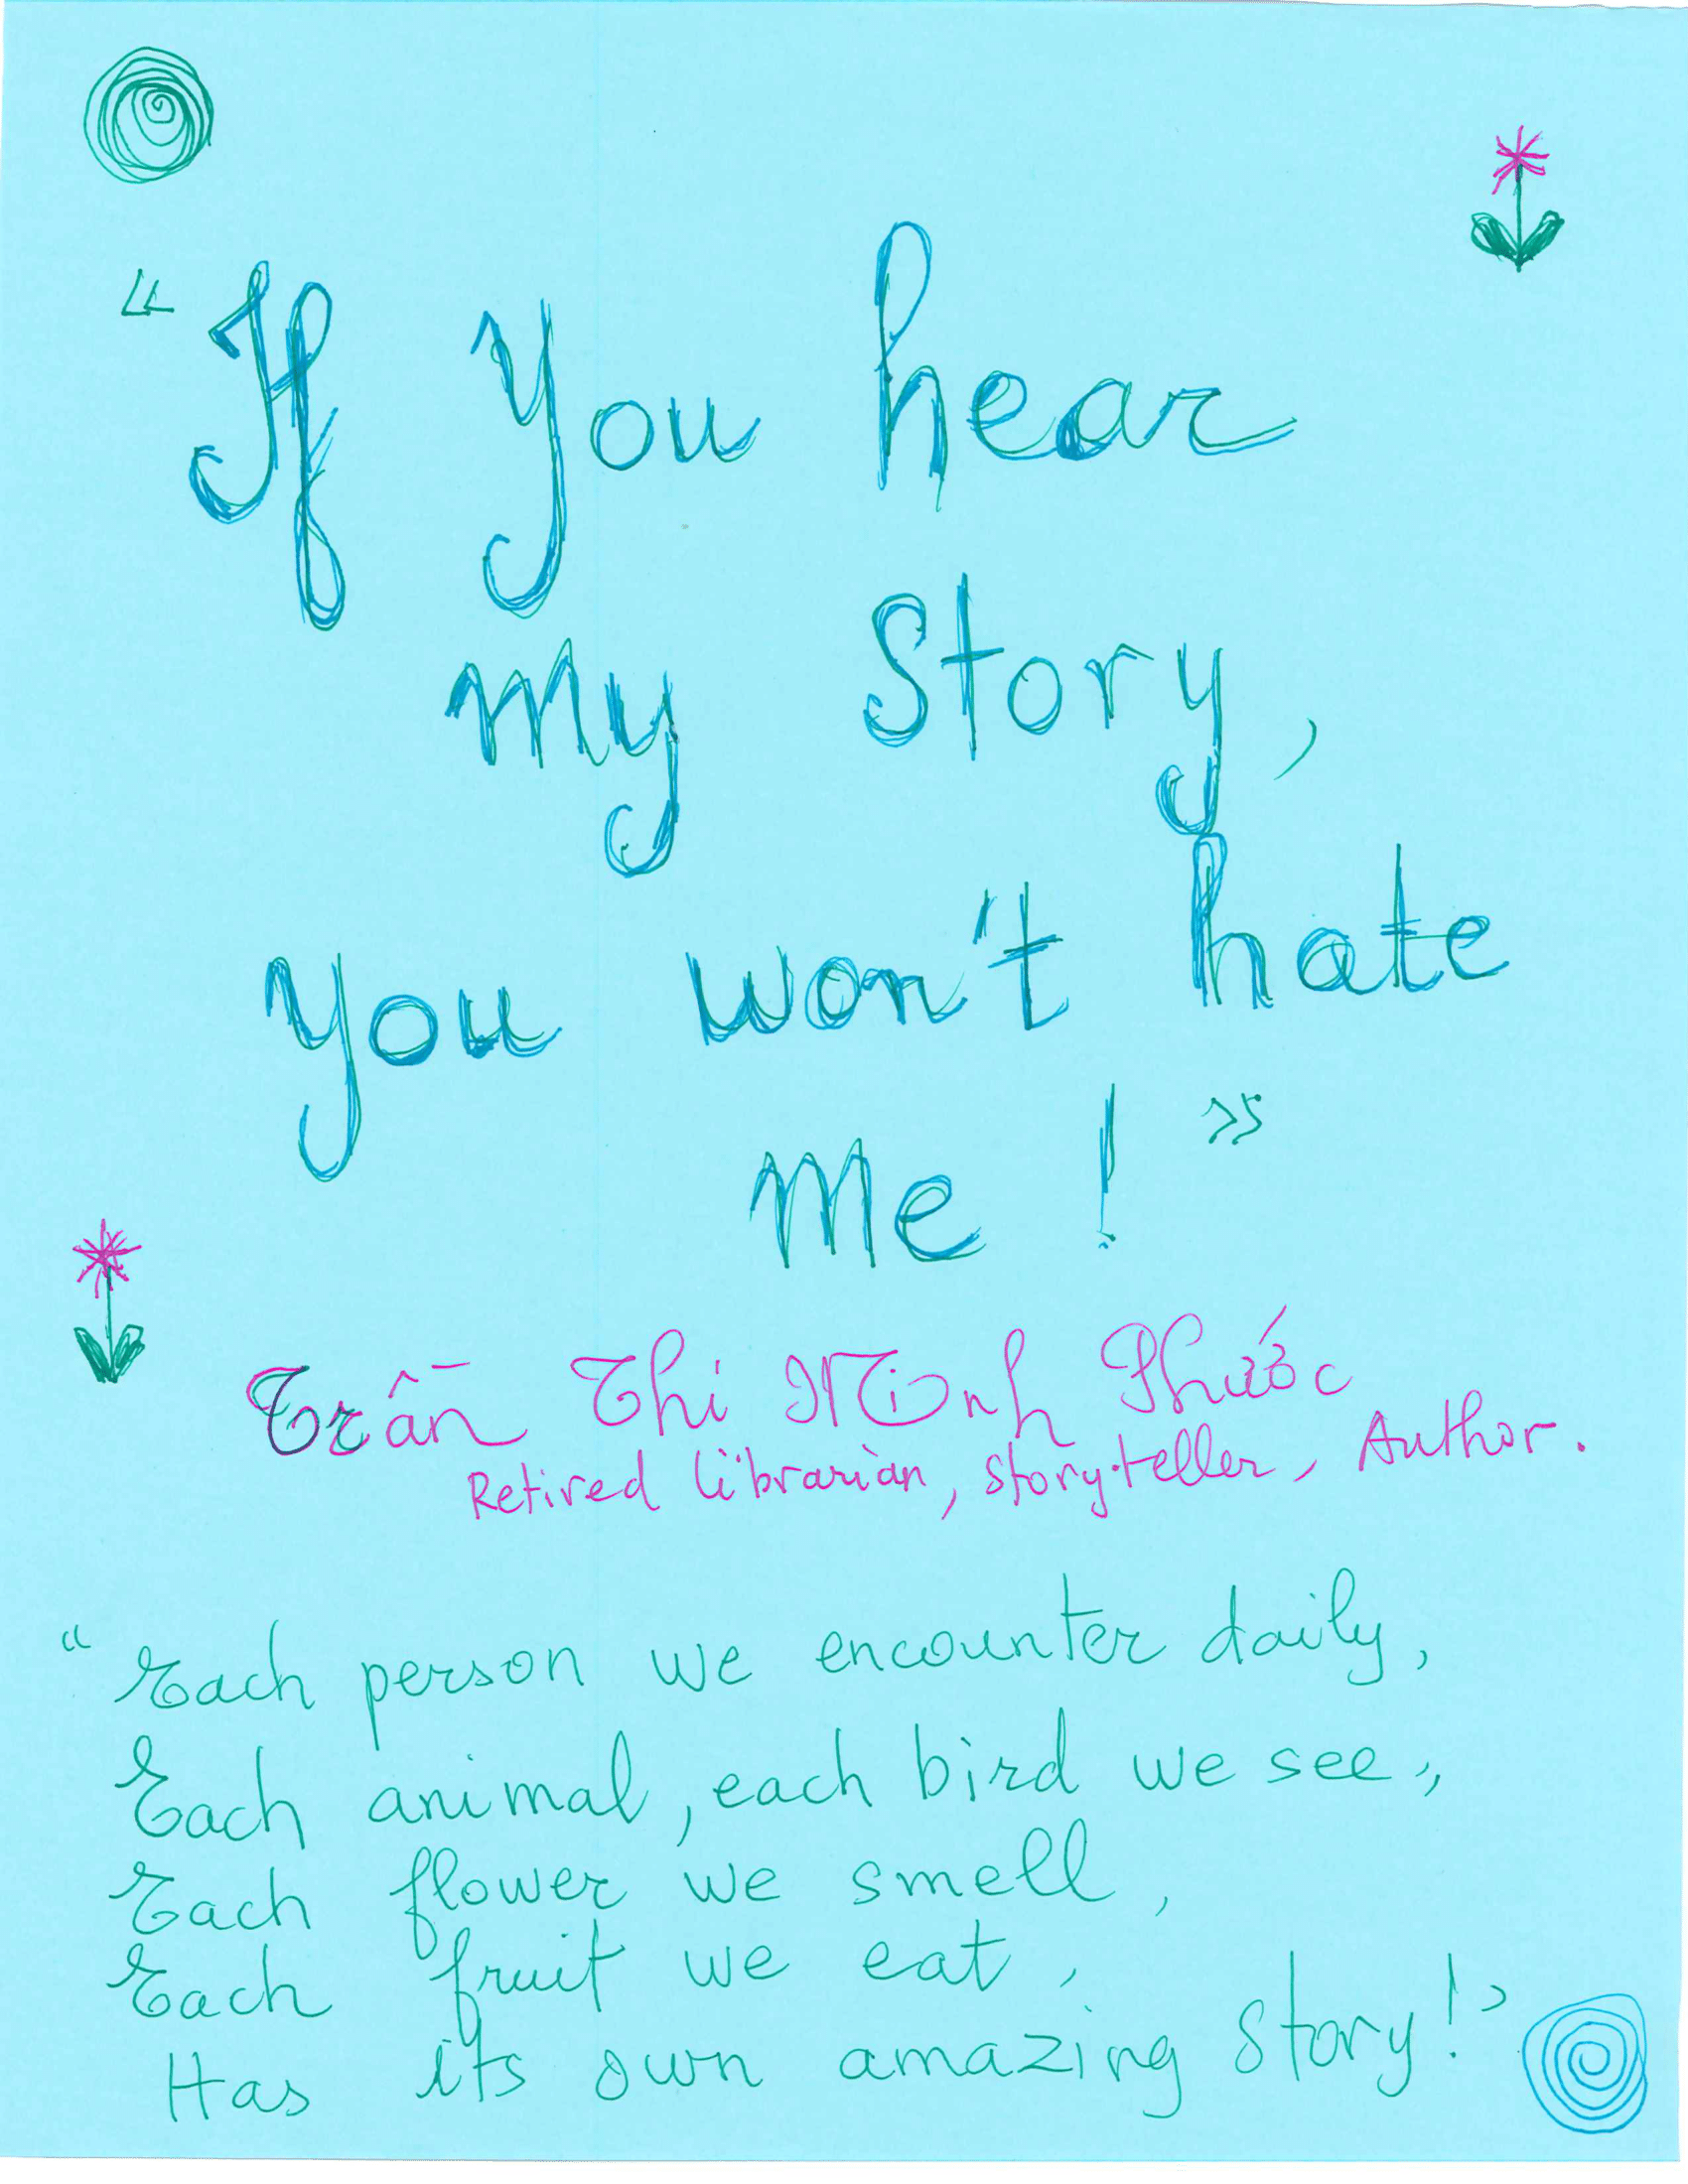 "If you hear
my Story,
you won't hate
me!"
Trần Thi Minh Phước
Retired librarian, storyteller, Author.
"Each person we encounter daily,
Each animal, each bird we see,
Each flower we smell,
Each fruit we eat,
Has its own amazing story!"